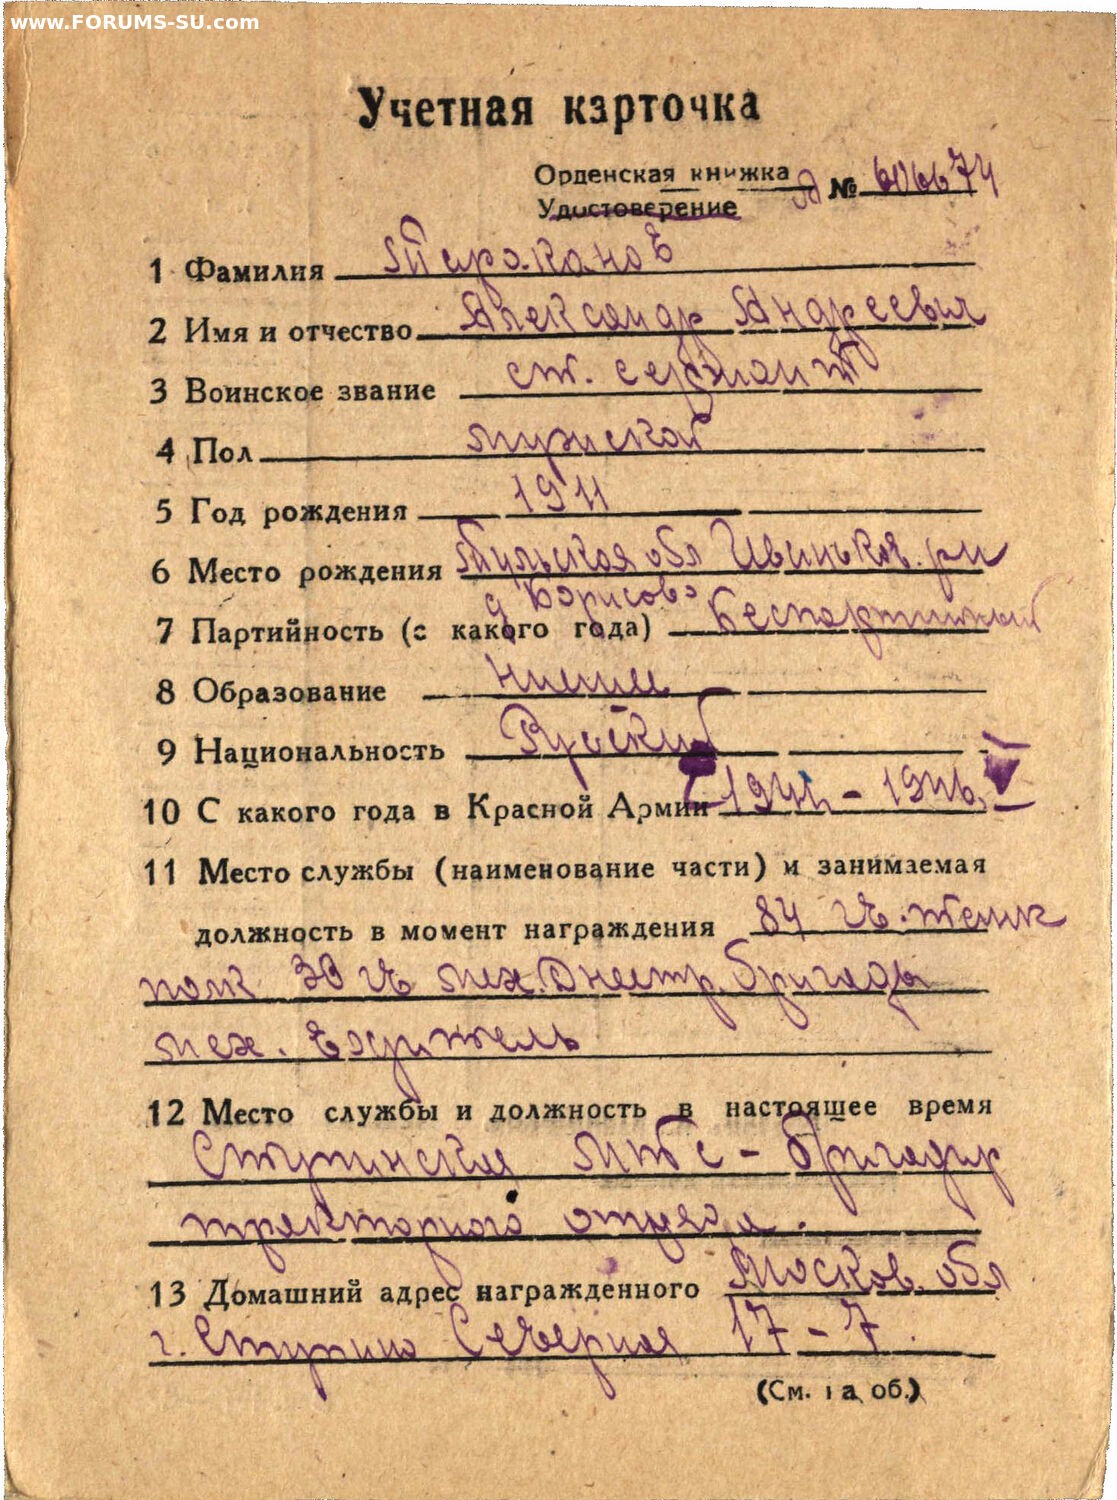 www.FORUMS-SU.com
Учетная карточка
Орденская книжка
Удостоверение
д № 606674
1 Фамилия Тараканов
2 Имя и отчество Александр Андреевич
3 Воинское звание ст. сержант
4 Пол мужской
5 Год рождения 1911
6 Место рождения Тульская обл Ивиньков. р-н
д Борисово
7 Партийность (с какого года) Беспартийный
8 Образование низшее
9 Национальность Русский
10 С какого года в Красной Армии с 1941 - 1946
11 Место службы (наименование части) и занимаемая
должность в момент награждения 84 гв. танк
полк 33 гв мех. Днестр. бригады
мех. водитель
12 Место службы и должность в настоящее время
Ступинская МТС - бригадир
тракторного отряда.
13 Домашний адрес награжденного Москов. обл
г. Ступино Северная 17-7.
(См. на об.)